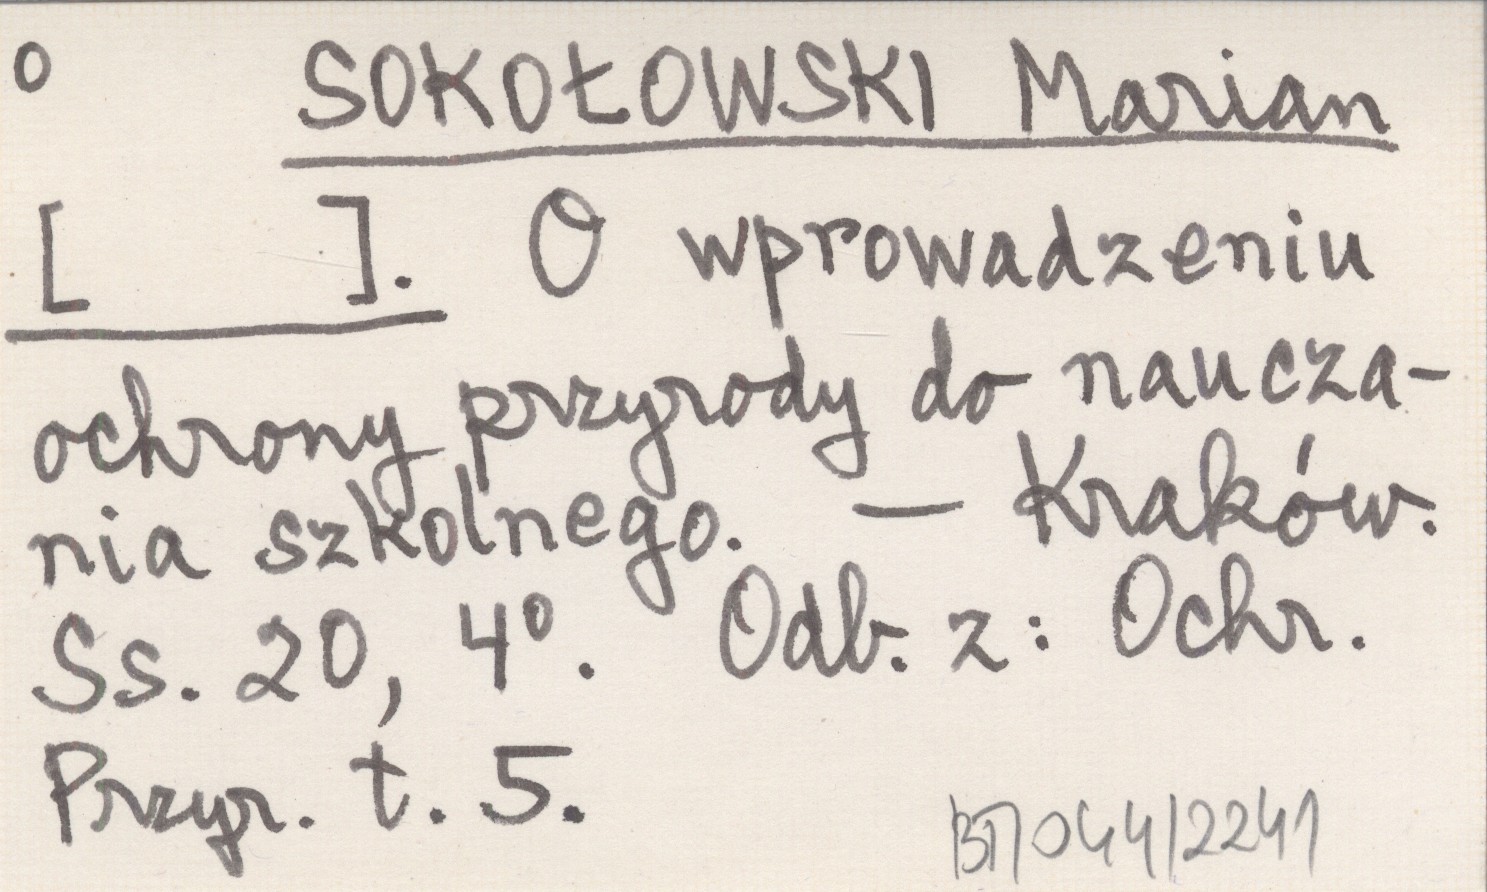 o SOKOŁOWSKI Marian
[ ]. O wprowadzeniu
ochrony przyrody do naucza-
nia szkolnego. — Kraków.
Ss. 20, 4º. Odb. z: Ochr.
Przyr. t. 5.
044/2241